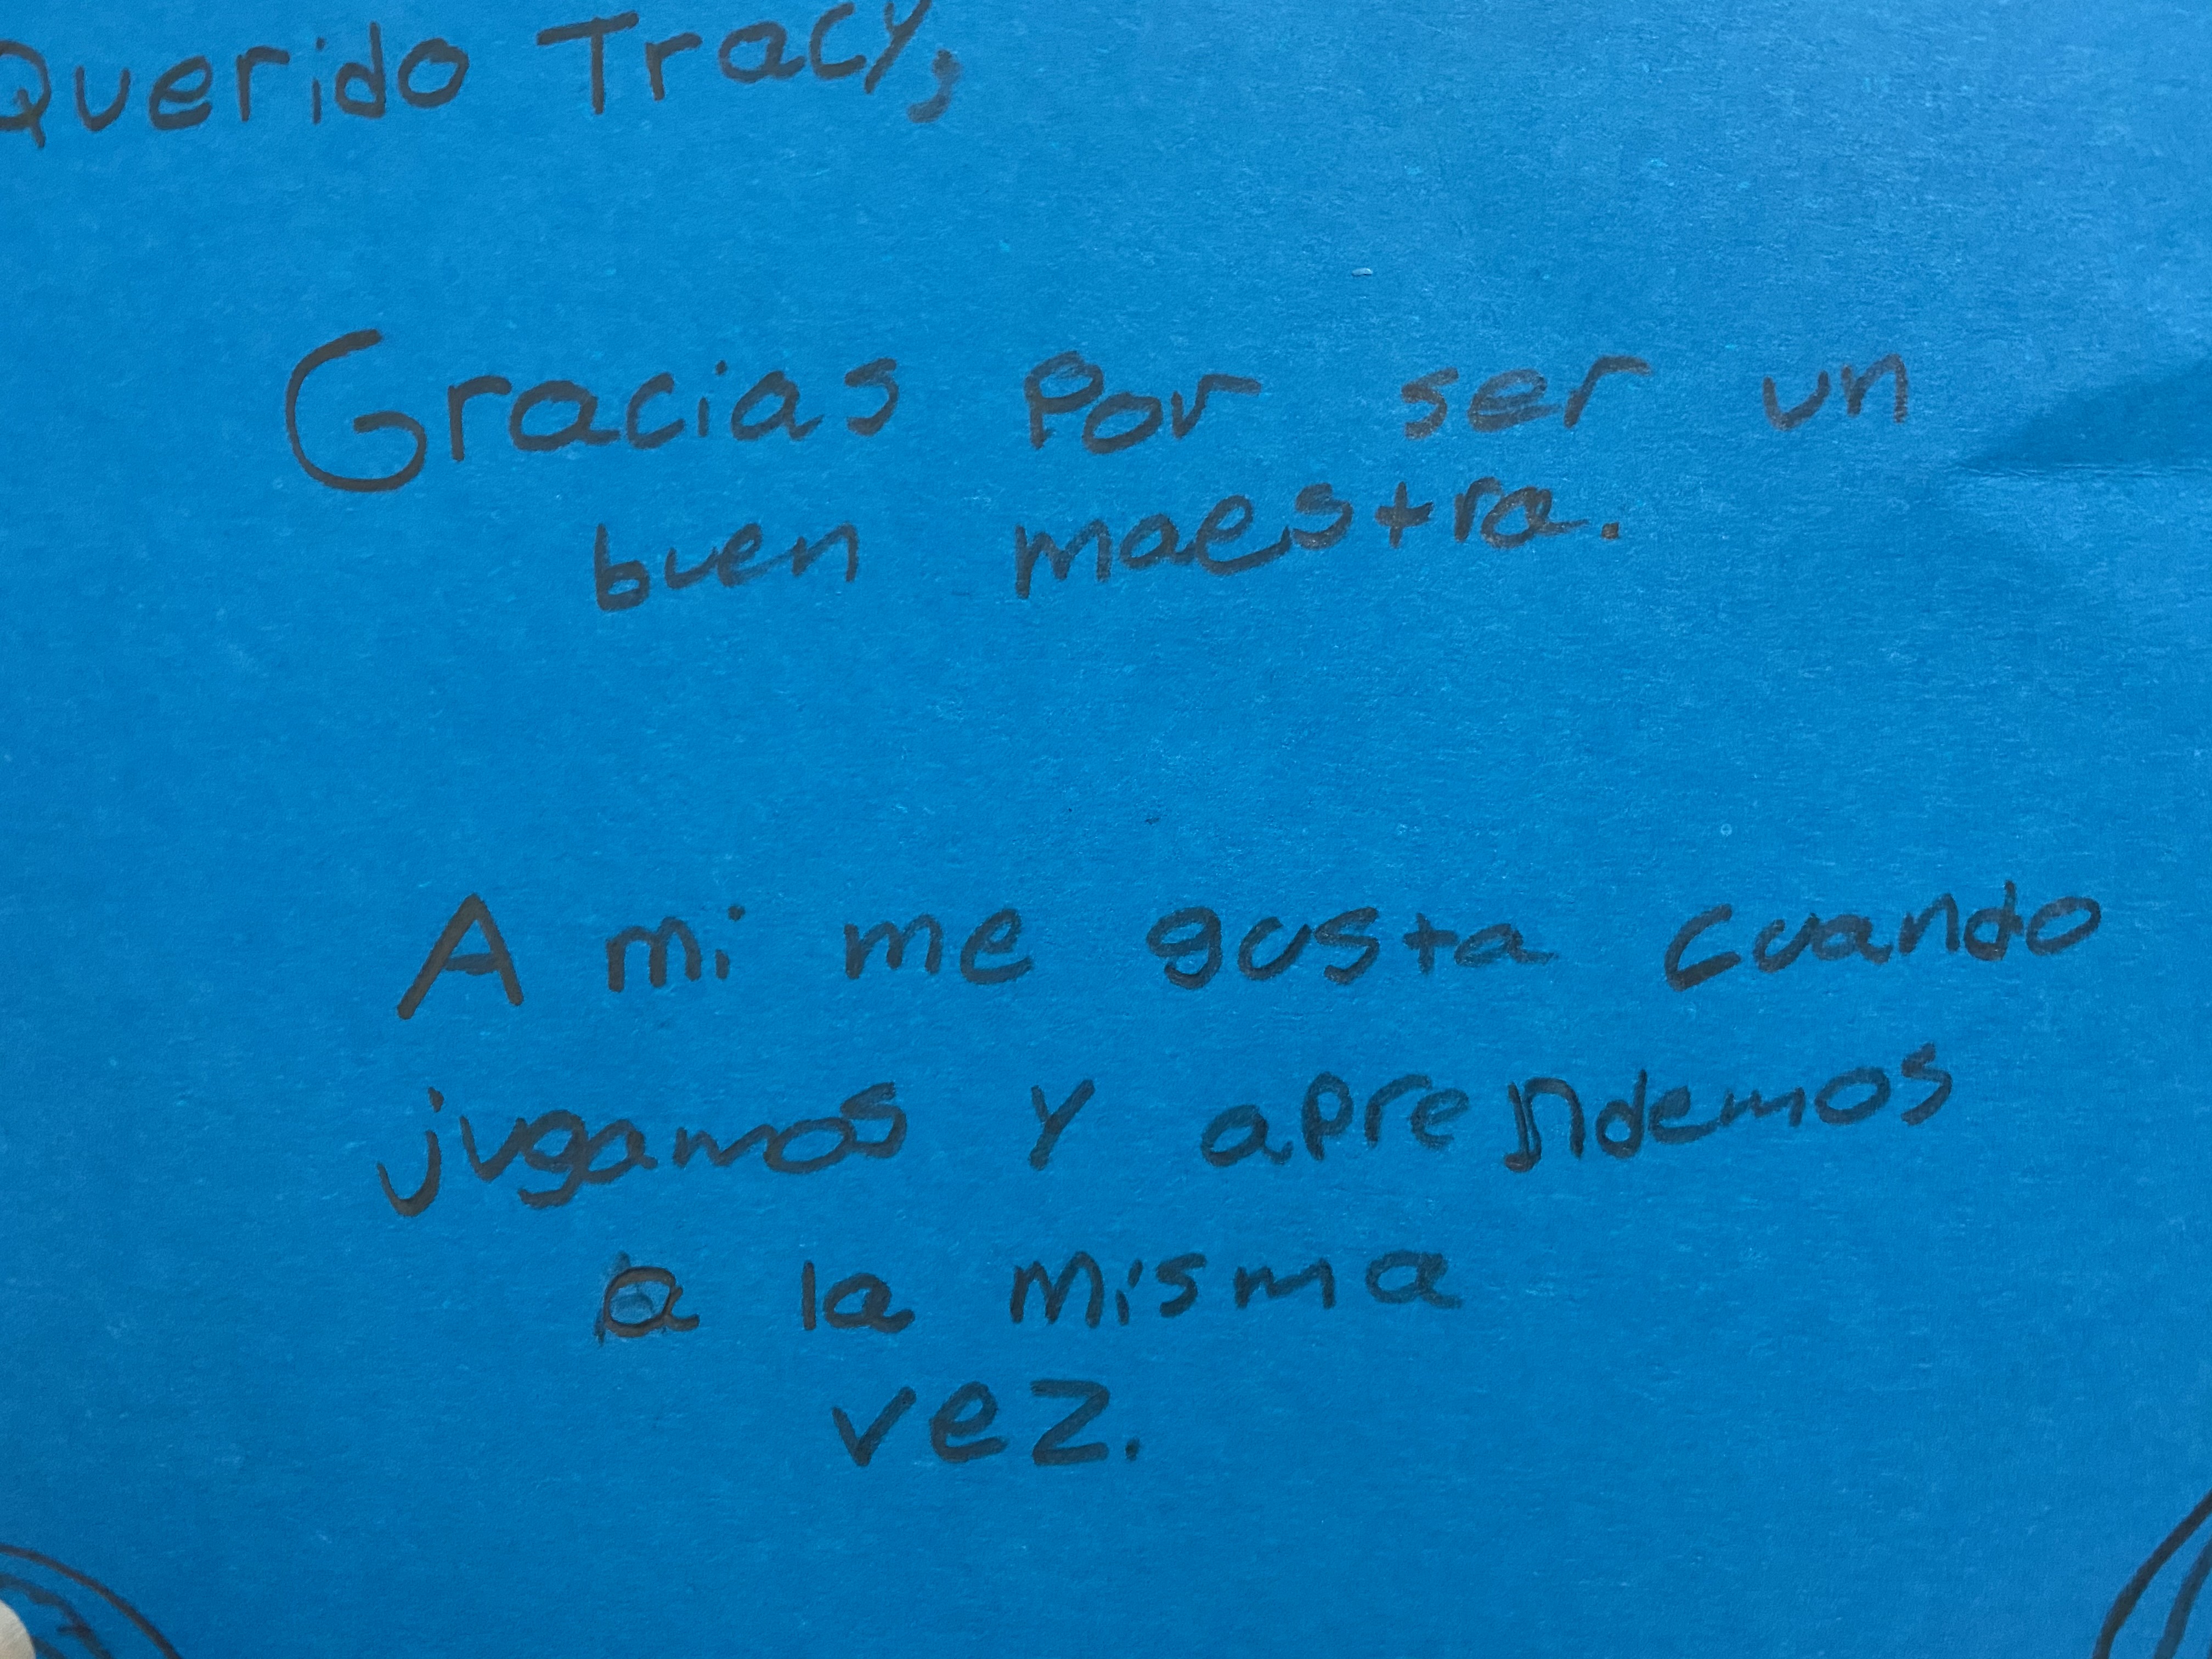 Querido Tracy,
Gracias Por ser un
buen maestra.
A mi me gusta cuando
jugamos y aprendemos
a la misma
vez.